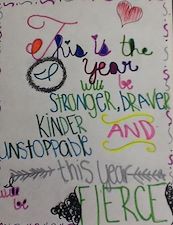 This is the
Year
I will be
STRONGER, BRAVER
KINDER
AND
UNSTOPPABLE
this year
I will be
FIERCE